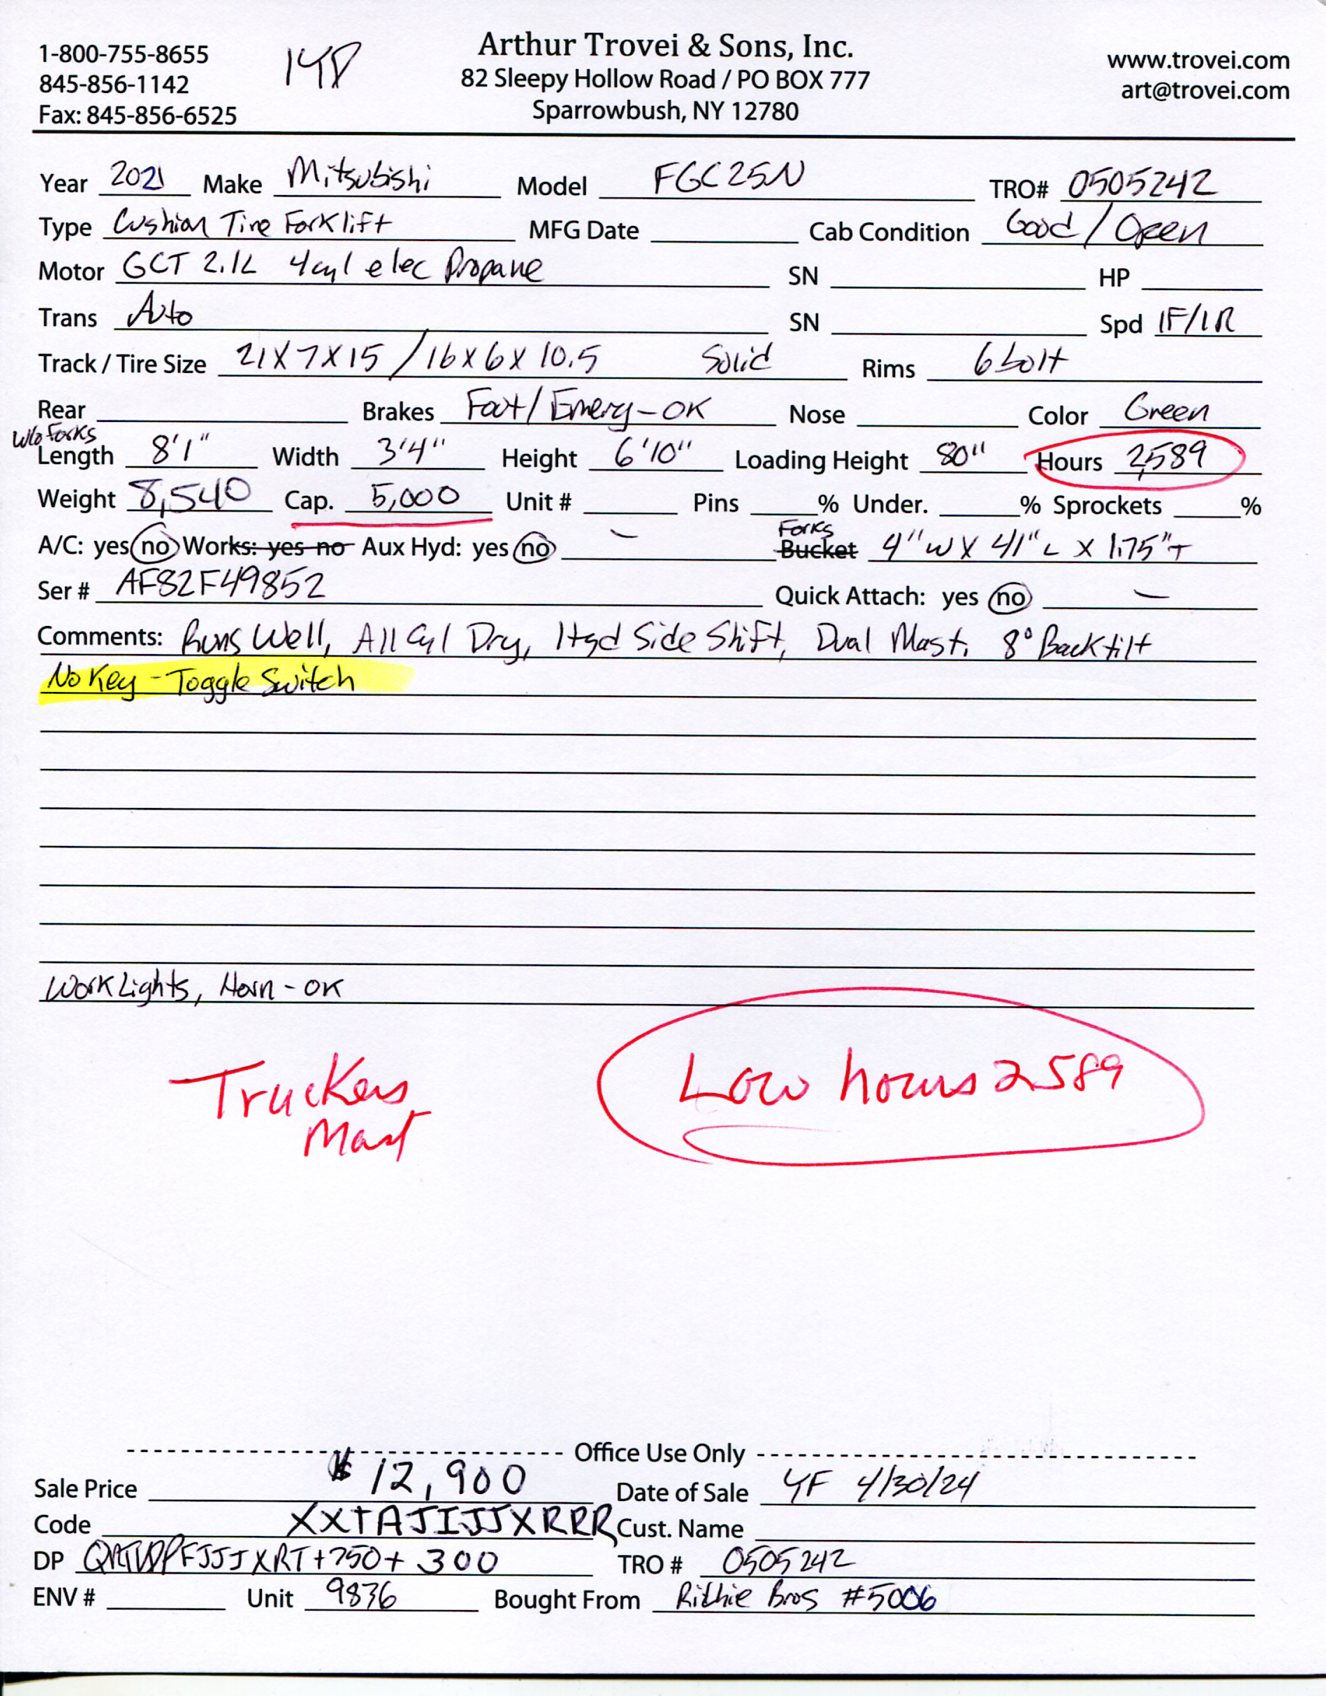 1-800-755-8655
845-856-1142
Fax: 845-856-6525
Arthur Trovei & Sons, Inc.
82 Sleepy Hollow Road / PO BOX 777
Sparrowbush, NY 12780
www.trovei.com
art@trovei.com
Year 2021 Make Mitsubishi Model FGC25N TRO# 0505242
Type Cushion Tire Forklift MFG Date Cab Condition Good / Open
Motor GCT 2.1L 4cyl elec Propane SN HP
Trans Auto SN Spd 1F/1R
Track / Tire Size 21x7x15 / 16x6x10.5 Solid Rims 6 bolt
Rear Brakes Foot/Emerg-OK Nose Color Green
w/o Forks
Length 8'1" Width 3'4" Height 6'10" Loading Height 80" Hours 2,589
Weight 8,540 Cap. 5,000 Unit # Pins % Under. % Sprockets %
A/C: yes no Works: yes no Aux Hyd: yes no - Forks Bucket 4"W x 41"L x 1.75"T
Ser # AF82F49852 Quick Attach: yes no -
Comments: Runs Well, All Cyl Dry, Hyd Side Shift, Dual Mast. 8° Back tilt
No Key - Toggle Switch
Work Lights, Horn - OK
Truckers
Mast
Low hours 2589
Office Use Only
Sale Price $12,900 Date of Sale YF 4/30/24
Code XXTAJIJJXRRR Cust. Name
DP +750+300 TRO # 0505242
ENV # Unit 9836 Bought From Ritchie Bros #5006